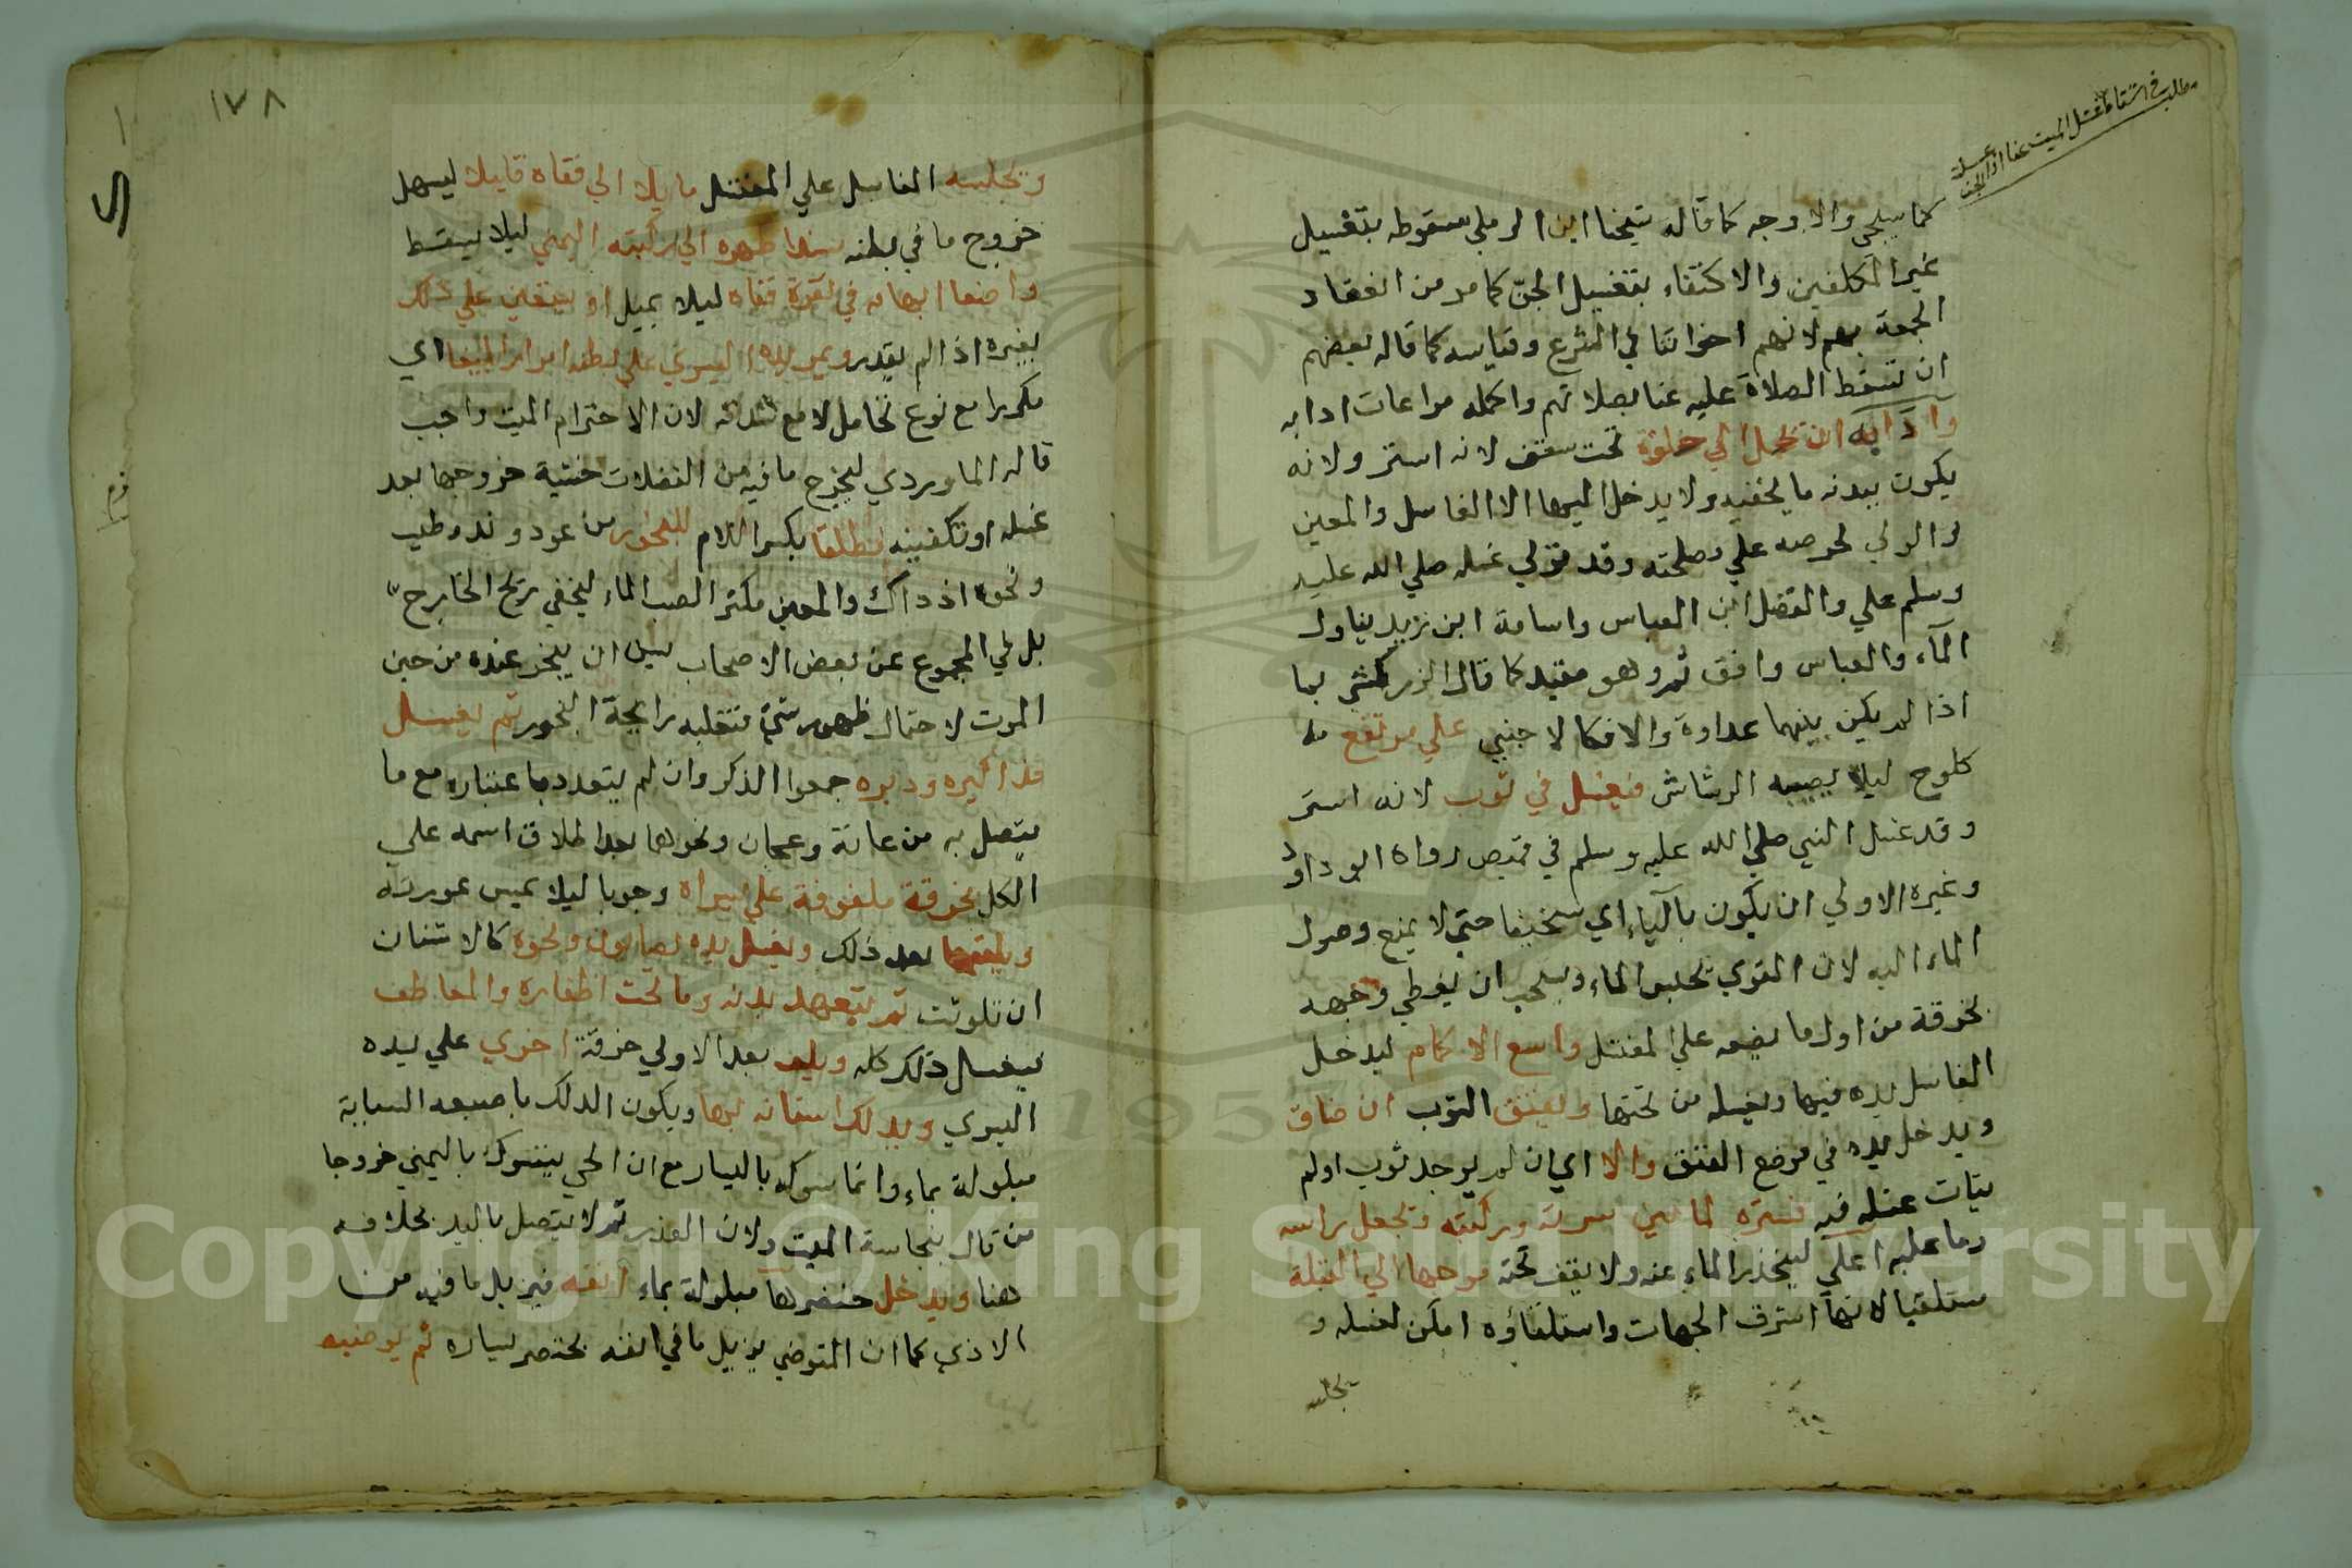 مطلب في اسقاط غسل الميت عنا اذا غسله
الجن
كما سيجي والاوجه كما قاله شيخنا ابن الرملي سقوطه بتغسيل
غير المكلفين والاكتفاء بتغسيل الجن كما مر من انعقاد
الجمعة بهم لانهم اخواننا في الشرع وقياسه كما قاله بعضهم
ان تسقط الصلاة عليه عنا بصلاتهم واكمله مراعات ادابه
وادابه ان يحمل الي خلوة تحت سقف لانه استر ولانه
يكون ببدنه ما يخفيه ولا يدخل اليها الا الغاسل والمعين
والولي لحرصه علي مصلحته وقد تولي غسله صلي الله عليه
وسلم علي والفضل ابن العباس واسامة ابن زيد يناول
المآء والعباس واقف ثم وهو مقيد كما قال الزركشي بما
اذا لم يكن بينهما عداوة والا فكالاجنبي علي مرتفع
كلوح ليلا يصيبه الرشاش فيغسل في ثوب لانه استر
وقد غسل النبي صلي الله عليه وسلم في قميص رواه ابو داود
وغيره الاولي ان يكون باليا اي سخيفا حتي لا يمنع وصول
الماء اليه لان القوي يحبس الماء ويستحب ان يغطي وجهه
بخرقة من اول ما يضعه علي المغتسل واسع الاكمام ليدخل
الغاسل يده فيها ويغسله من تحتها ويفتق الثوب ان ضاق
ويدخل يده في موضع الفتق والا اي ان لم يوجد ثوب او لم
يتات غسله فيه فستره لما بين سرته وركبته وتجعل راسه
وما عليه اعلي لينحدر الماء عنه ولا يقف تحته موجها الي القبلة
مستلقيا لانها اشرف الجهات واستلقاؤه امكن لغسله و
يجلسه
١٧٨
ويجلسه الغاسل علي المغتسل مايلا الي قفاه قليلا ليسهل
خروج ما في بطنه سندا ظهره الي ركبته اليمني ليلا يسقط
واضعا ابهامه في نقرة قفاه ليلا يميل او يستعين علي ذلك
بغيره اذا لم يقدر ويمر يده اليسري علي بطنه امرارا بليغا اي
مكررا مع نوع تحامل لا مع شدته لان الاحترام الميت واجب
قاله الماوردي ليخرج ما فيه من الفضلات خشية خروجها بعد
غسله او تكفينه مطلقا بكسر اللام للبخور من عود وند وطيب
ونحوه اذ ذاك والمعين مكثر الصب الماء ليخفي ريح الخارج
بل في المجموع عن بعض الاصحاب يسن ان يبخر عنده من حين
الموت لاحتمال ظهور شي فتغلبه رايحة البخور ثم يغسل
مذاكيره ودبره جمعوا الذكر وان لم يتعدد باعتباره مع ما
يتصل به من عانة وعجان ونحوهما بعد اطلاق اسمه علي
الكل بخرقة ملفوفة علي يسراه وجوبا ليلا يمس عورته
ويلقيها بعد ذلك ويغسل يده بصابون ونحوه كالاشنان
ان تلوثت ثم يتعهد بدنه وما تحت اظفاره والمعاطف
بغسل ذلك كله ويلف بعد الاولي خرقة اخري علي يده
اليسري ويدلك اسنانه بها ويكون الدلك باصبعه السبابة
مبلولة بماء وانما سوكه باليسار مع ان الحي يتسوك باليمني خروجا
من قال بنجاسة الميت ولان القذر ثم لا يتصل باليد بخلافه
هنا ويدخل خنصرها مبلولة بماء انفه فيزيل ما فيه من
الاذي كما ان المتوضي يزيل ما في انفه بخنصر يساره ثم يوضيه